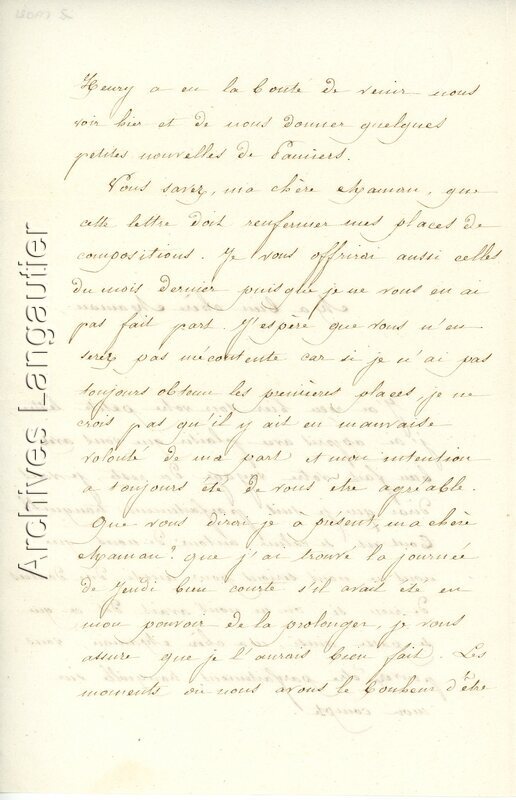 Henry a eu la bonté de venir nous
voir hier et de nous donner quelques
petites nouvelles de Pamiers.
Vous savez, ma chère Maman, que
cette lettre doit renfermer mes places de
compositions. Je vous offrirai aussi celles
du mois dernier puisque je ne vous en ai
pas fait part. J'espère que vous n'en
serez pas mécontente car si je n'ai pas
toujours obtenu les premières places, je ne
crois pas qu'il y ait eu mauvaise
volonté de ma part et mon intention
a toujours été de vous être agréable.
Que vous dirai je à présent, ma chère
Maman? que j'ai trouvé la journée
de Jeudi bien courte s'il avait été en
mon pouvoir de la prolonger, je vous
assure que je l'aurais bien fait. Les
moments où nous avons le bonheur d'être
Archives Langautier